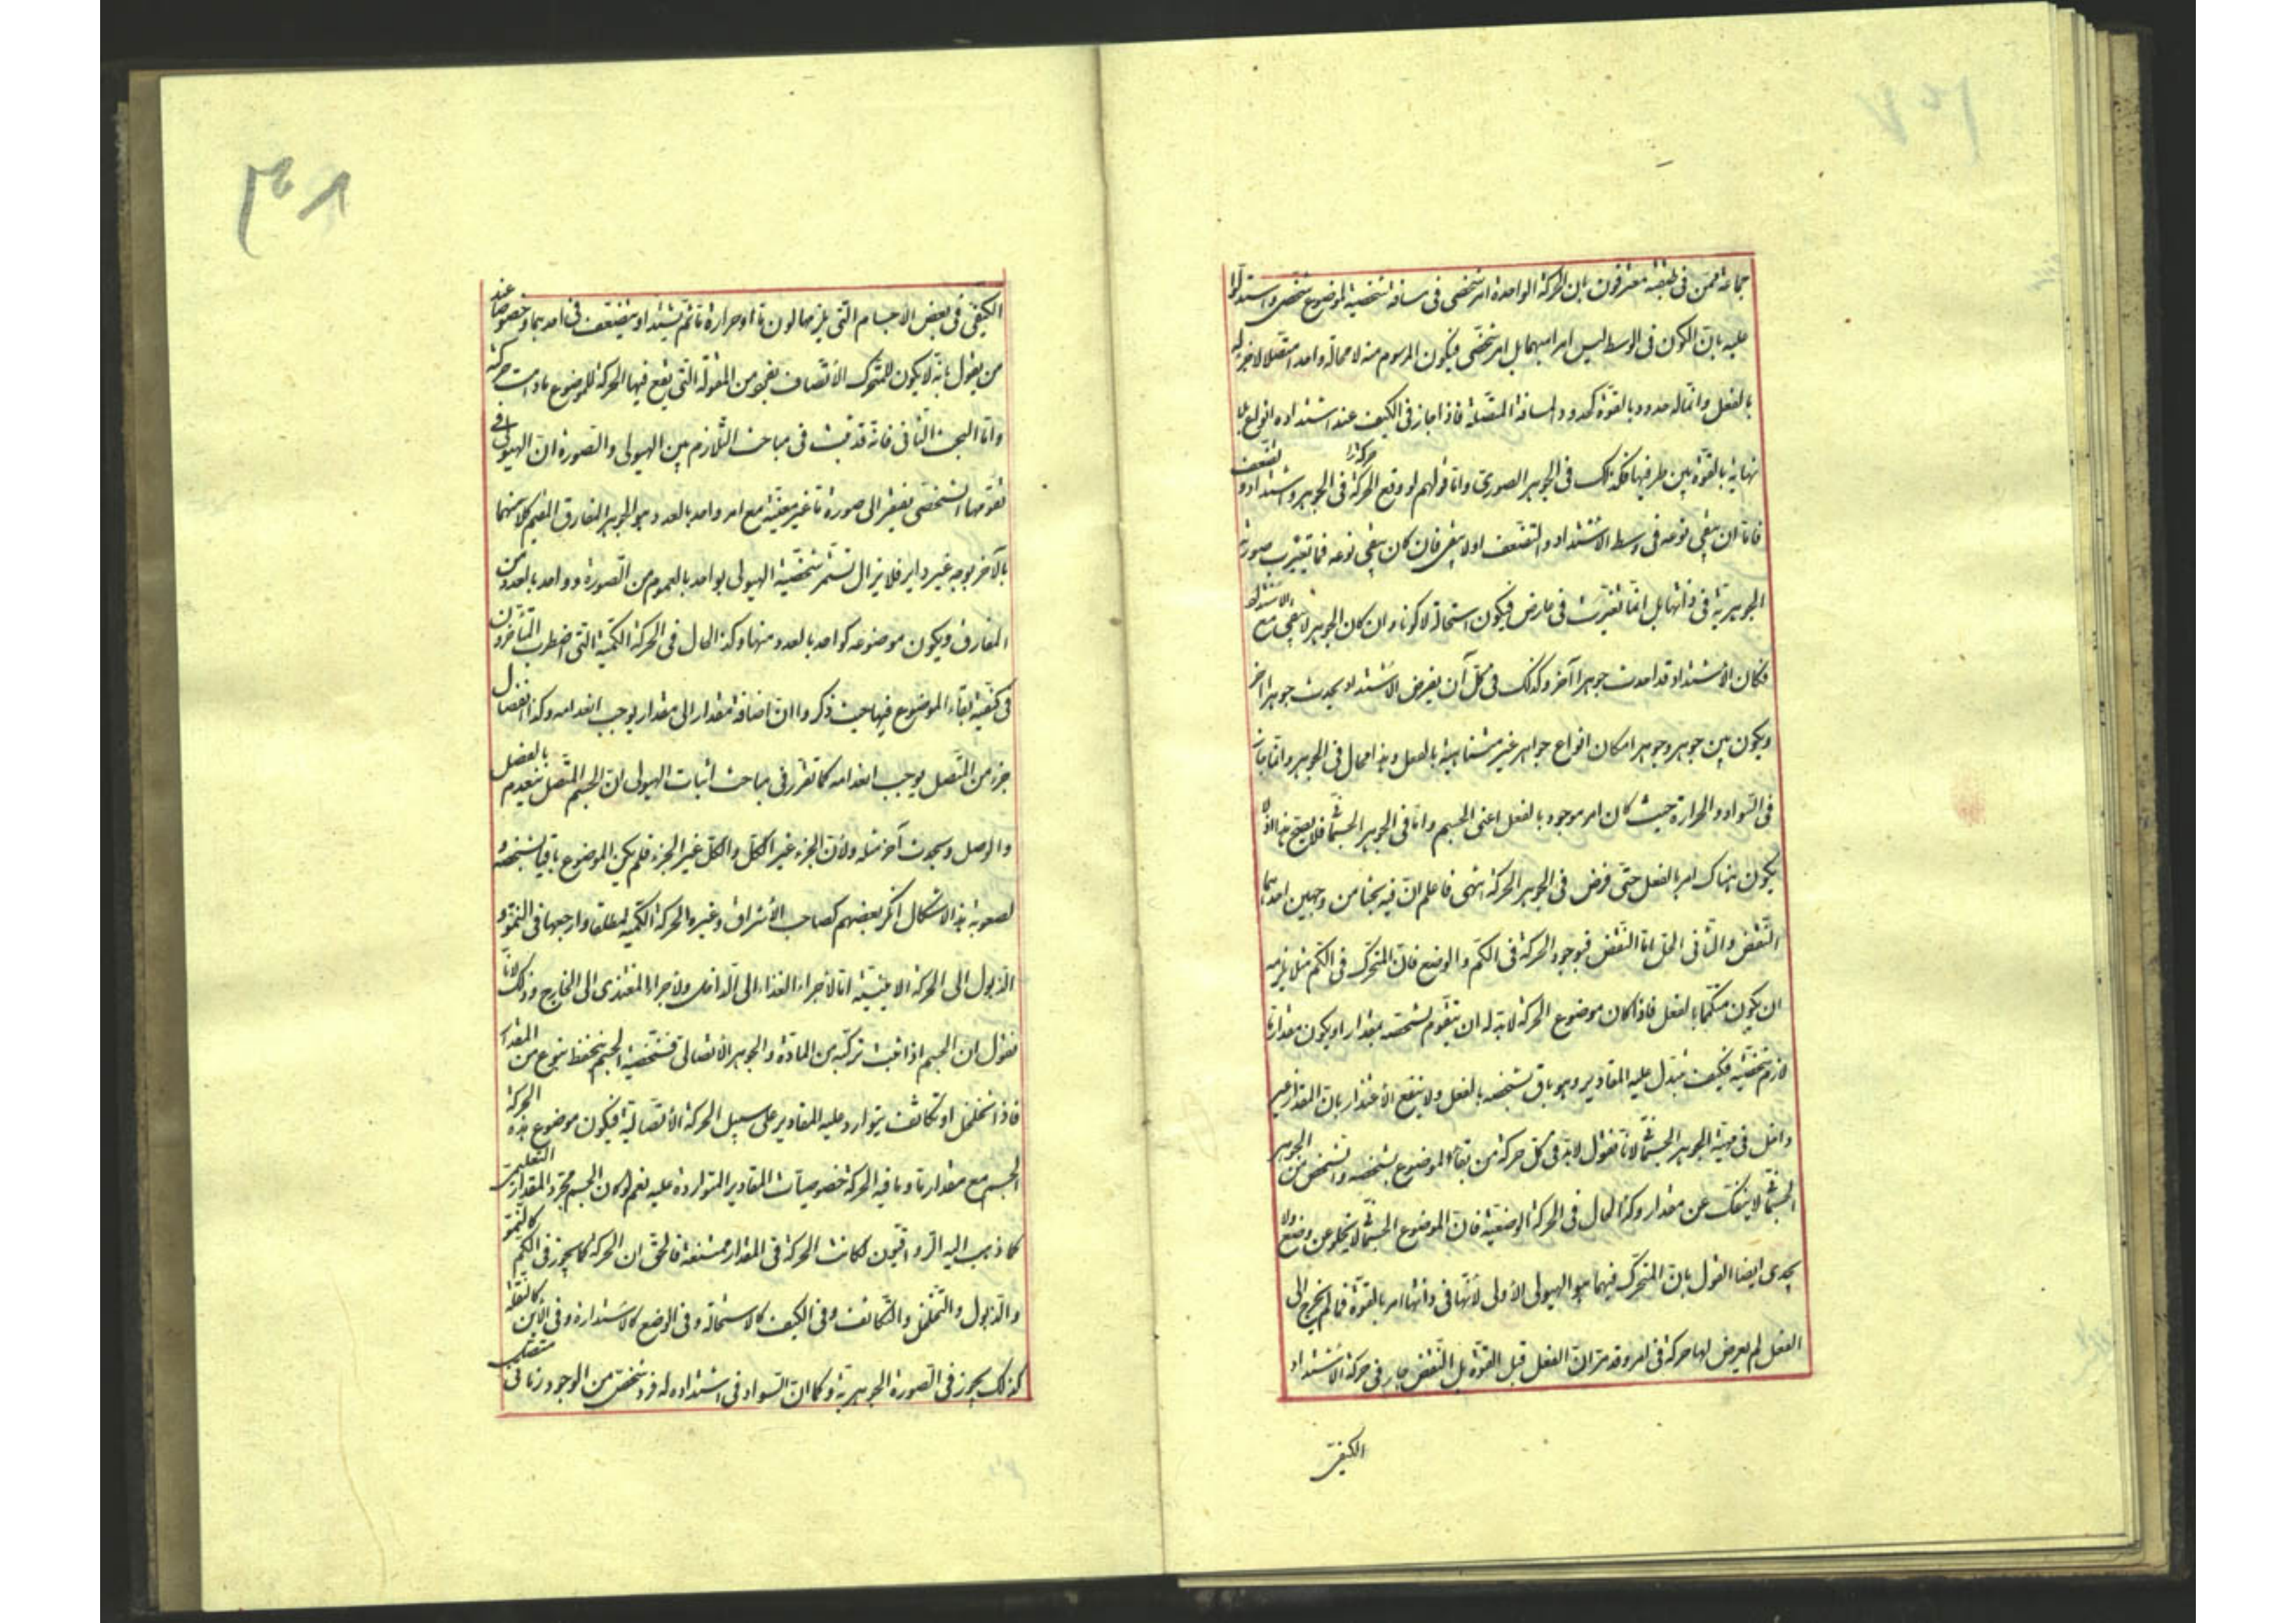 جماعة ممن فی طبقته معترفون بان الحرکة الواحدة امر شخصی فی مسافة شخصیة لموضوع شخصی واستدلوا
علیه بان الکون فی الوسط لیس امرا مبهما بل امر شخصی فیکون المرسوم منه لا محالة واحدا متصلا لا جزء له
بالفعل وانما له حدود بالقوة کحدود المسافة المتصلة فاذا جاز فی الکیف عند اشتداده انواع بلا
نهایة بالقوة بین طرفیها فکذلک فی الجوهر الصوری واما قولهم لو وقع الحرکة فی الجوهر واشتداد وتضعف
فاما ان یبقی نوعه فی وسط الاشتداد والتضعف او لا یبقی فان کان یبقی نوعه فما تغیرت صورته
الجوهریة فی ذاتها بل انما تغیرت فی عارض فیکون استحالة لا کونا وان کان الجوهر لا یبقی مع الاشتداد
فکان الاشتداد قد احدث جوهرا آخر وکذلک فی کل آن یفرض الاشتداد یحدث جوهرا آخر
ویکون بین جوهر وجوهر امکان انواع جواهر غیر متناهیة بالفعل وهذا محال فی الجوهر وانما جاز
فی السواد والحرارة حیث کان امر موجود بالفعل اعنی الجسم واما فی الجوهر الجسمانی فلا یصح هذا اذ لا
یکون هناک امر بالفعل حتی فرض فی الجوهر الحرکة انتهی فاعلم ان فیه بحثا من وجهین احدهما
النقض والثانی الحل اما النقض فبوجود الحرکة فی الکم والوضع فان المتحرک فی الکم مثلا یلزمه
ان یکون متکمما بالفعل فاذا کان موضوع الحرکة لا بد له ان یتقوم تشخصه بمقدار او یکون مقدار ما
لازم تشخصه فکیف یتبدل علیه المقادیر وهو باق بشخصه بالفعل ولا ینفع الاعتذار بان المقدار غیر
داخل فی مهیة الجوهر الجسمانی لانا نقول لا بد فی کل حرکة من بقاء الموضوع بشخصه والتشخص من الجوهر
الجسمانی لا ینفک عن مقدار وکذا الحال فی الحرکة الوضعیة فان الموضوع الجسمانی لا یخلو عن وضع ولا
یجدی ایضا القول بان المتحرک فیهما هو الهیولی الاولی لانها فی ذاتها امر بالقوة فما لم یخرج الی
الفعل لم یعرض لها حرکة فی امر وقد مر ان الفعل قبل القوة بل النقض جار فی حرکة الاشتداد
الکیفی
الکیفی فی بعض الاجسام التی یلزمها لون ما او حرارة ما ثم یشتد او یتضعف فی احدهما وخصوصا عند
من یقول بانه لا یکون للمتحرک الاتصاف بفرد من المقولة التی یقع فیها الحرکة للموضوع ما دامت حرکة
واما البحث الثانی فانه قد ثبت فی مباحث التلازم بین الهیولی والصورة ان الهیولی فی
تقومها الشخصی یفتقر الی صورة ما غیر معینة مع امر واحد بالعدد وهو الجوهر المفارق المقیم کلا منهما
بالآخر بوجه غیر دایر فلا یزال تستمر شخصیة الهیولی بواحد بالعموم من الصورة وواحد بالعدد من
المفارق ویکون موضوعه کواحد بالعدد منها وکذا الحال فی الحرکة الکمیة التی اضطرب المتأخرون
فی کیفیة بقاء الموضوع فیها حیث ذکروا ان اضافة مقدار الی مقدار یوجب انعدامه وکذا انفصال
جزء من المتصل یوجب انعدامه کما تقرر فی مباحث اثبات الهیولی ان الجسم المتصل ینعدم بالفصل
والوصل ویحدث آخر مثله ولان الجزء غیر الکل والکل غیر الجزء فلم یکن الموضوع باقیا بشخصه و
لصعوبة هذا الاشکال انکر بعضهم کصاحب الاشراق وغیره الحرکة الکمیة مطلقا وارجعها فی النمو و
الذبول الی الحرکة الاینیة اما لاجزاء الغذاء الی الداخل ولاجزاء المغتذی الی الخارج وذلک لانا
نقول ان الجسم اذا ثبت ترکبه من المادة والجوهر الاتصالی فشخصیة الجسم ینحفظ بنوع من المقدار
فاذا تخلخل او تکاثف یتوارد علیه المقادیر علی سبیل الحرکة الاتصالیة فیکون موضوع هذه الحرکة
الجسم مع مقدار ما وما فیه الحرکة خصوصیات المقادیر المتواردة علیه نعم لو کان الجسم مجرد المقدار التعلیمی
کما ذهب الیه الرواقیون لکانت الحرکة فی المقدار ممتنعة فالحق ان الحرکة کما یجوز فی الکم کالنمو
والذبول والتخلخل والتکاثف وفی الکیف کالاستحالة وفی الوضع کالاستدارة وفی الاین کالنقلة
کذلک یجوز فی الصورة الجوهریة وکما ان السواد فی اشتداده له فرد شخصی من الوجود زمانی متصل